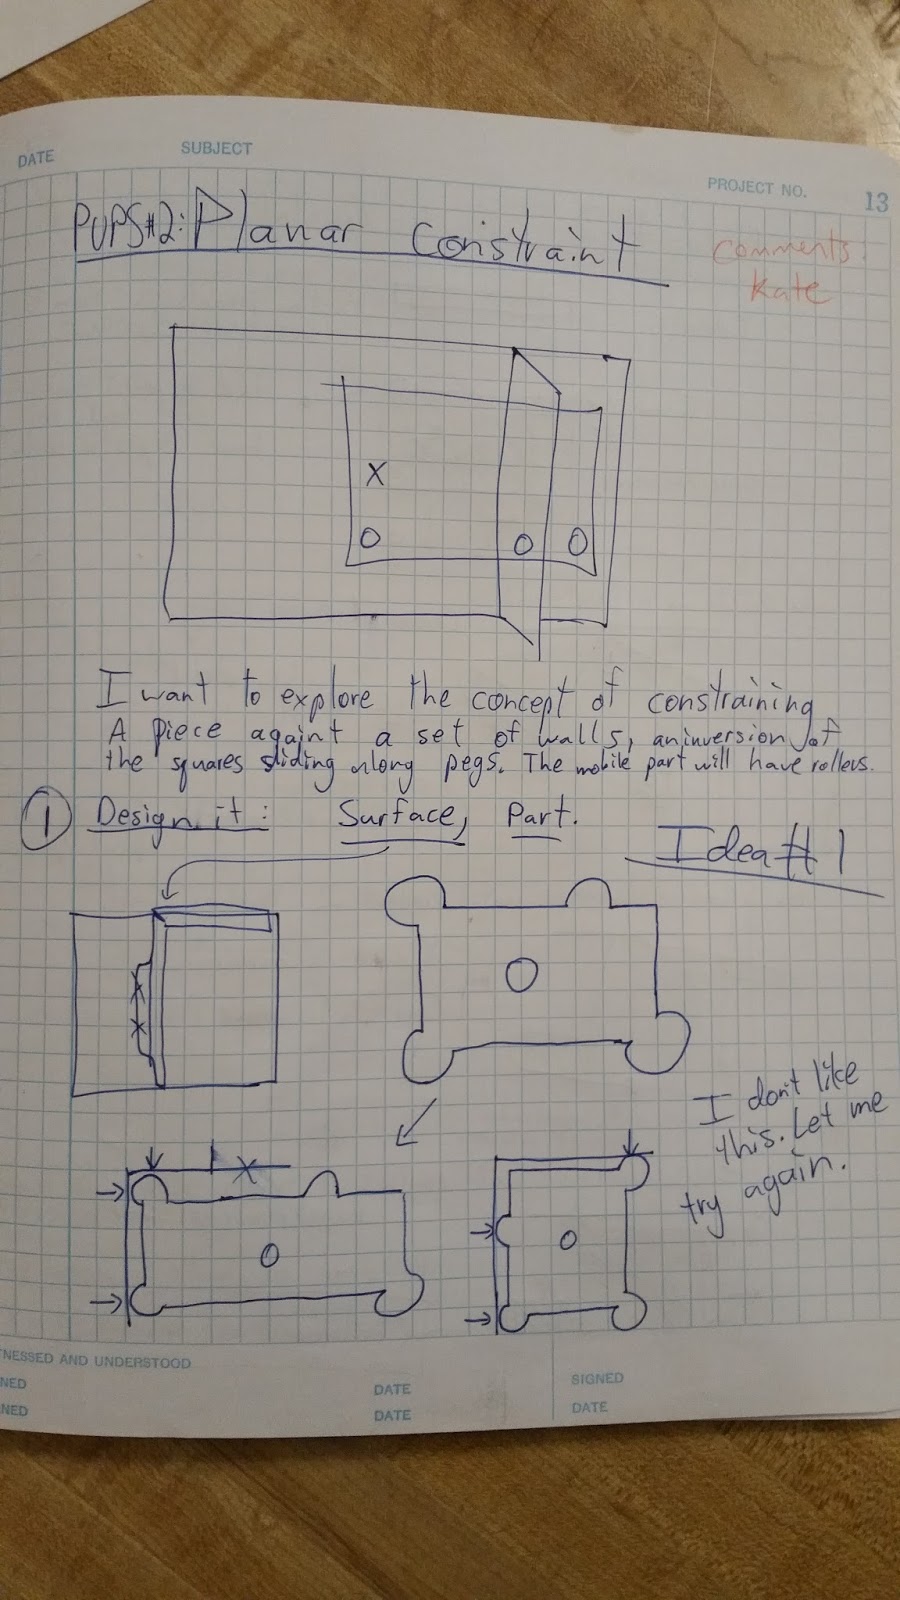 DATE
SUBJECT
PROJECT NO.
13
PUPS#2: Planar Constraint
Comments
Kate
X
O O O
I want to explore the concept of constraining
A piece againt a set of walls, an inversion of
the squares sliding along pegs. The mobile part will have rollers.
1 Design it: Surface, Part.
Idea #1
X
X
I don't like
this. Let me
try again.
X
TNESSED AND UNDERSTOOD
NED
DATE
SIGNED
NED
DATE
DATE